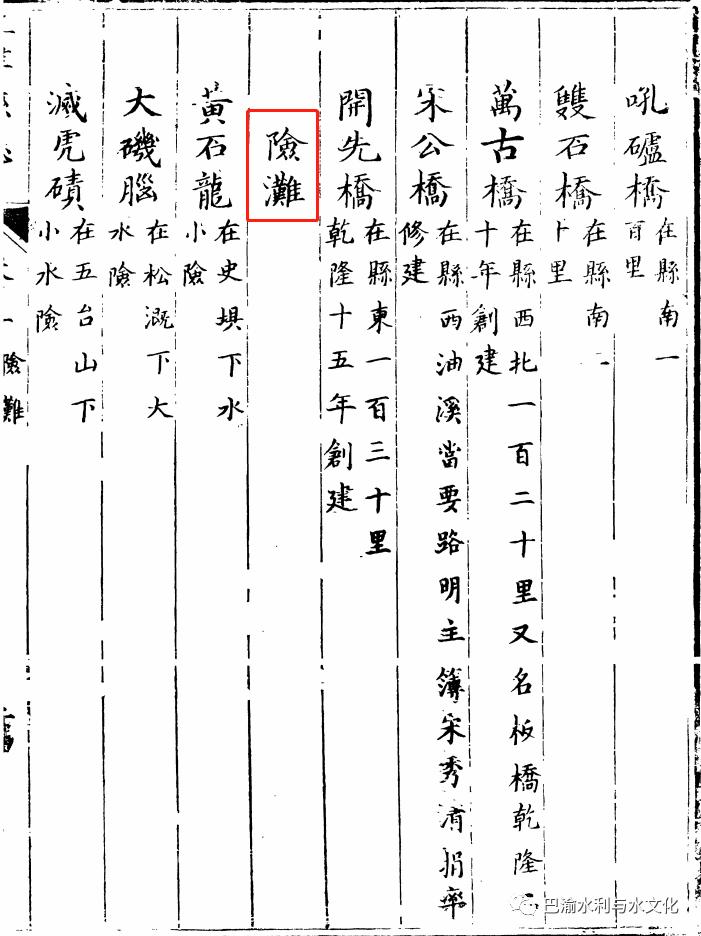 吼礶橋在縣南一百里
雙石橋在縣南一
十里
萬古橋在縣西北一百二十里又名板橋乾隆
十年創建
宋公橋在縣西油溪當要路明主簿宋秀清捐率
修建
開先橋在縣東一百三十里
乾隆十五年創建
險灘
黃石龍在史壩下水
小險
大磯腦在松溉下大
水險
滅虎磧在五台山下
小水險
險灘
巴渝水利与水文化